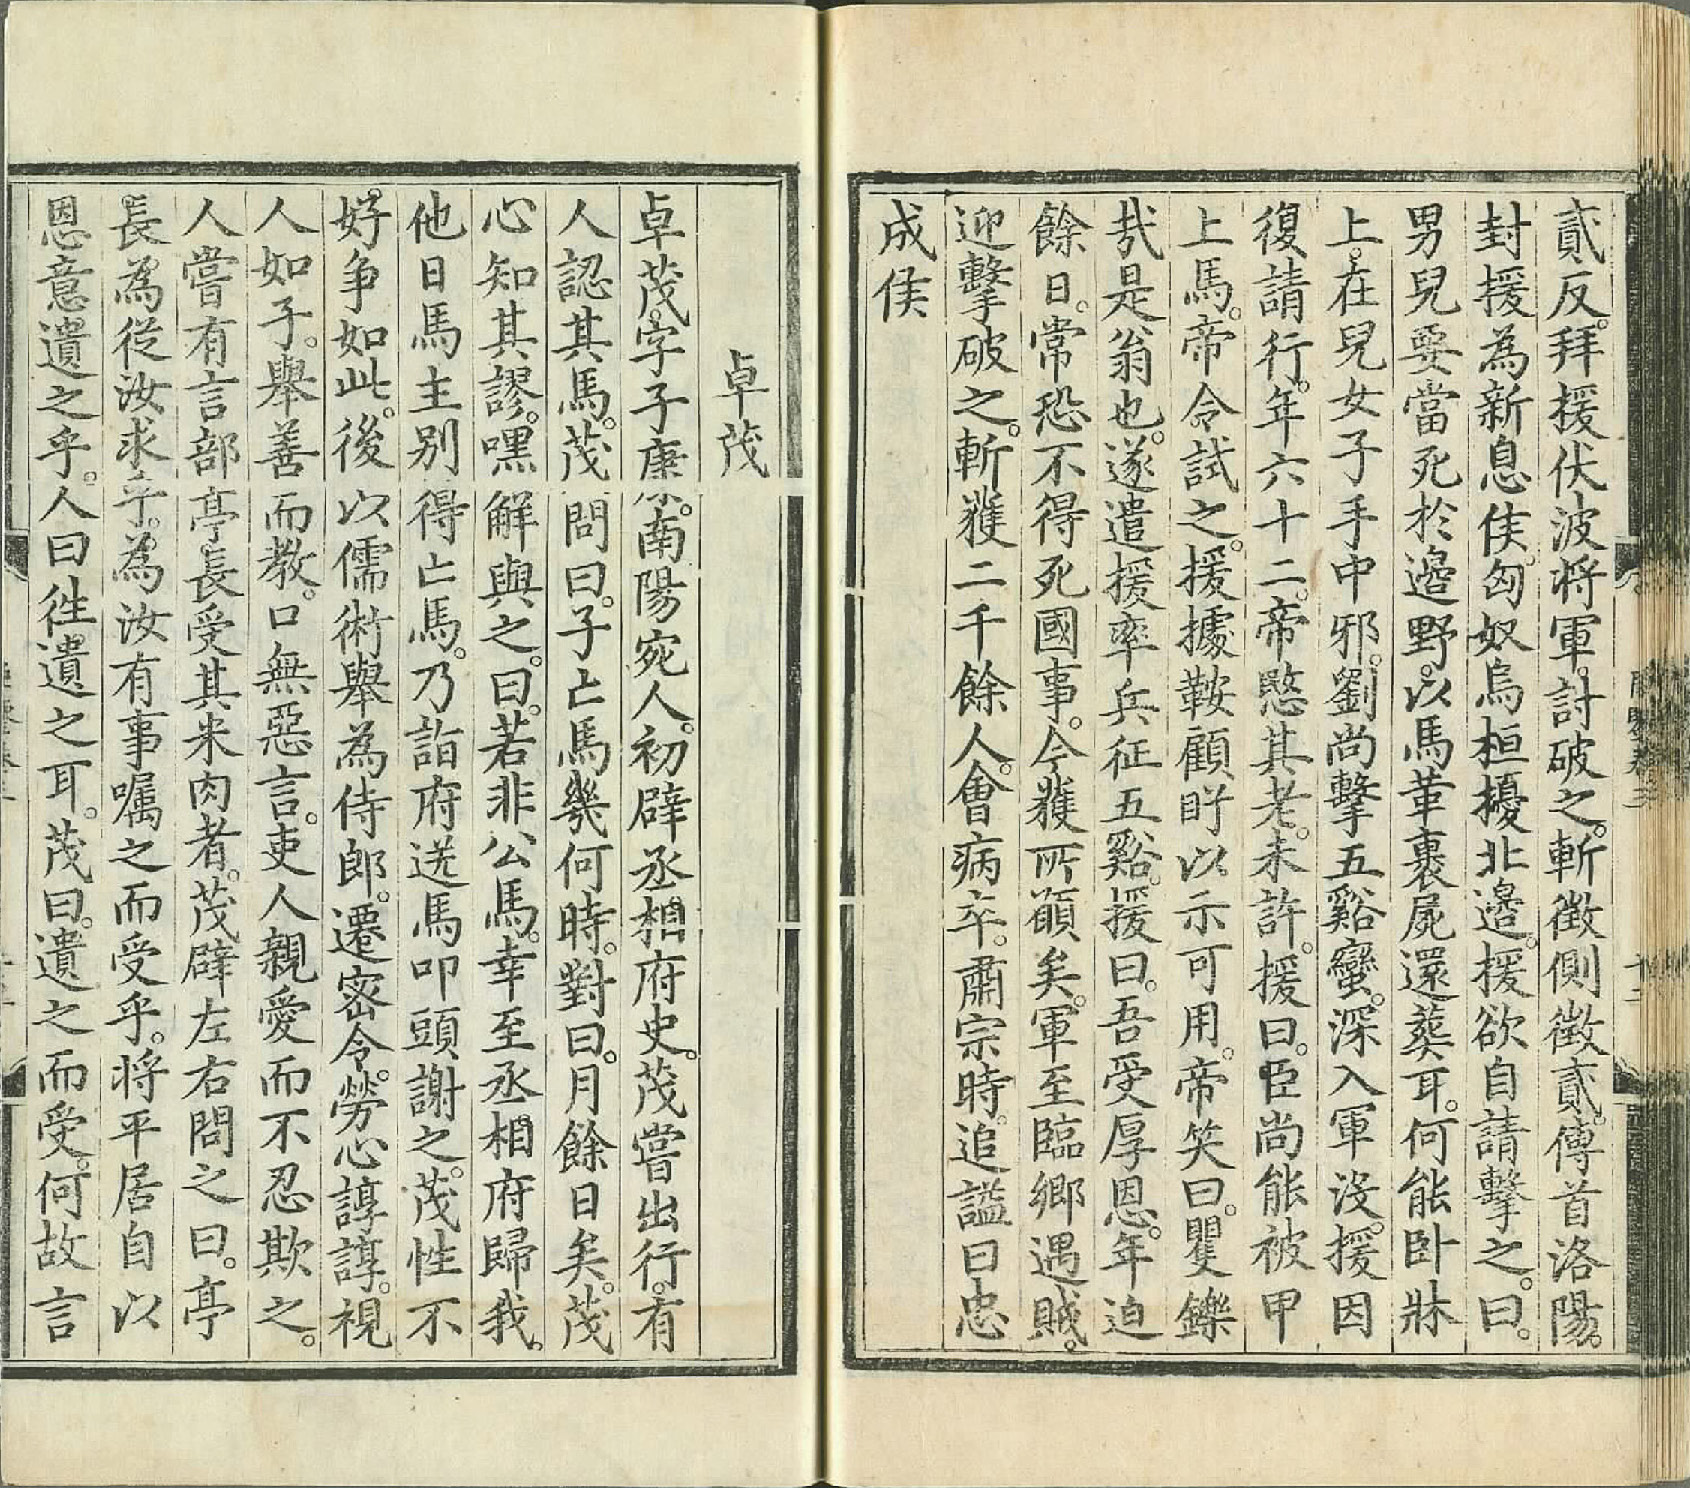 貳反。拜援伏波将軍。討破之。斬徵側徵貳。傳首洛陽。
封援為新息侯。匈奴烏桓擾北邉。援欲自請擊之。曰。
男兒要當死於邉野。以馬革裹屍還葬耳。何能卧牀
上。在兒女子手中邪。劉尚擊五谿蠻。深入軍沒。援因
復請行。年六十二。帝愍其老。未許。援曰。臣尚能被甲
上馬。帝令試之。援據鞍顧眄以示可用。帝笑曰。矍鑠
哉是翁也。遂遣援率兵征五谿。援曰。吾受厚恩。年迫
餘日。常恐不得死國事。今獲所願矣。軍至臨鄉遇賊。
迎擊破之。斬獲二千餘人。會病卒。肅宗時。追謚曰忠
成侯
卓茂
卓茂。字子康。南陽宛人。初辟丞相府史。茂嘗出行。有
人認其馬。茂問曰。子亡馬幾何時。對曰。月餘日矣。茂
心知其謬。嘿解與之。曰。若非公馬。幸至丞相府歸我。
他日馬主别得亡馬。乃詣府送馬叩頭謝之。茂性不
好争如此。後以儒術舉為侍郎。遷密令。勞心諄諄。視
人如子。舉善而教。口無惡言。吏人親愛而不忍欺之。
人嘗有言部亭長受其米肉者。茂辟左右問之曰。亭
長為從汝求乎。為汝有事嘱之而受乎。将平居自以
恩意遺之乎。人曰往遺之耳。茂曰。遺之而受。何故言